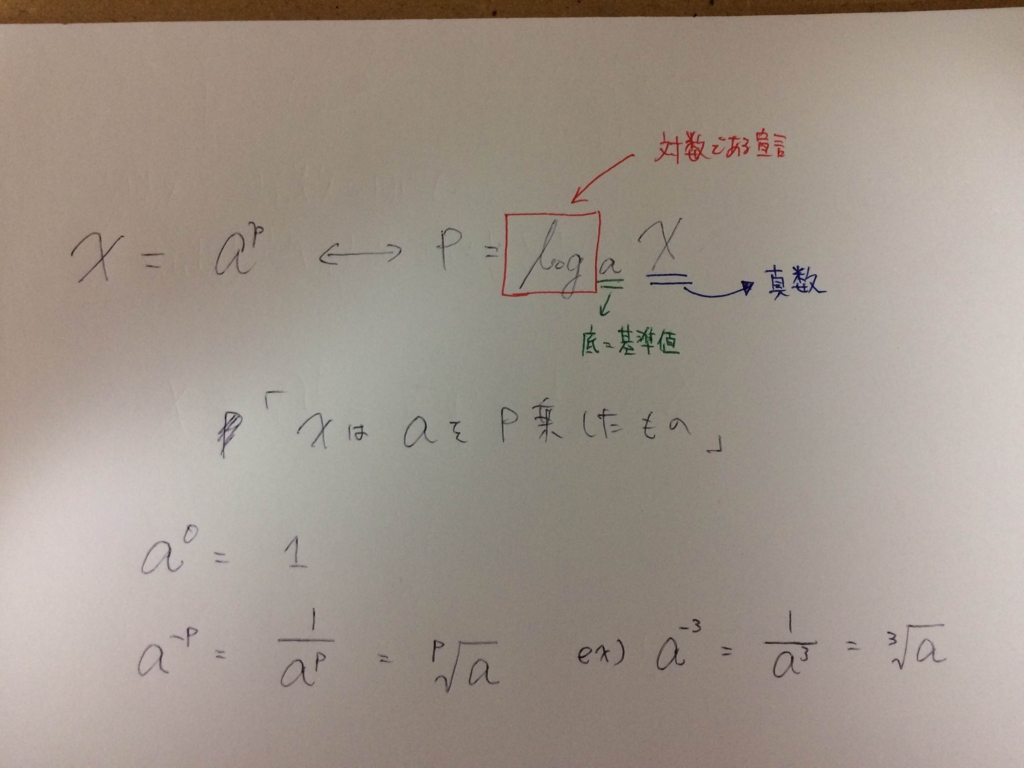 対数である宣言
x = a^p ⟷ P = log_a x → 真数
底=基準値
「xはaをP乗したもの」
a^0 = 1
a^-P = 1/a^P = ᴾ√a ex) a^-3 = 1/a^3 = ³√a